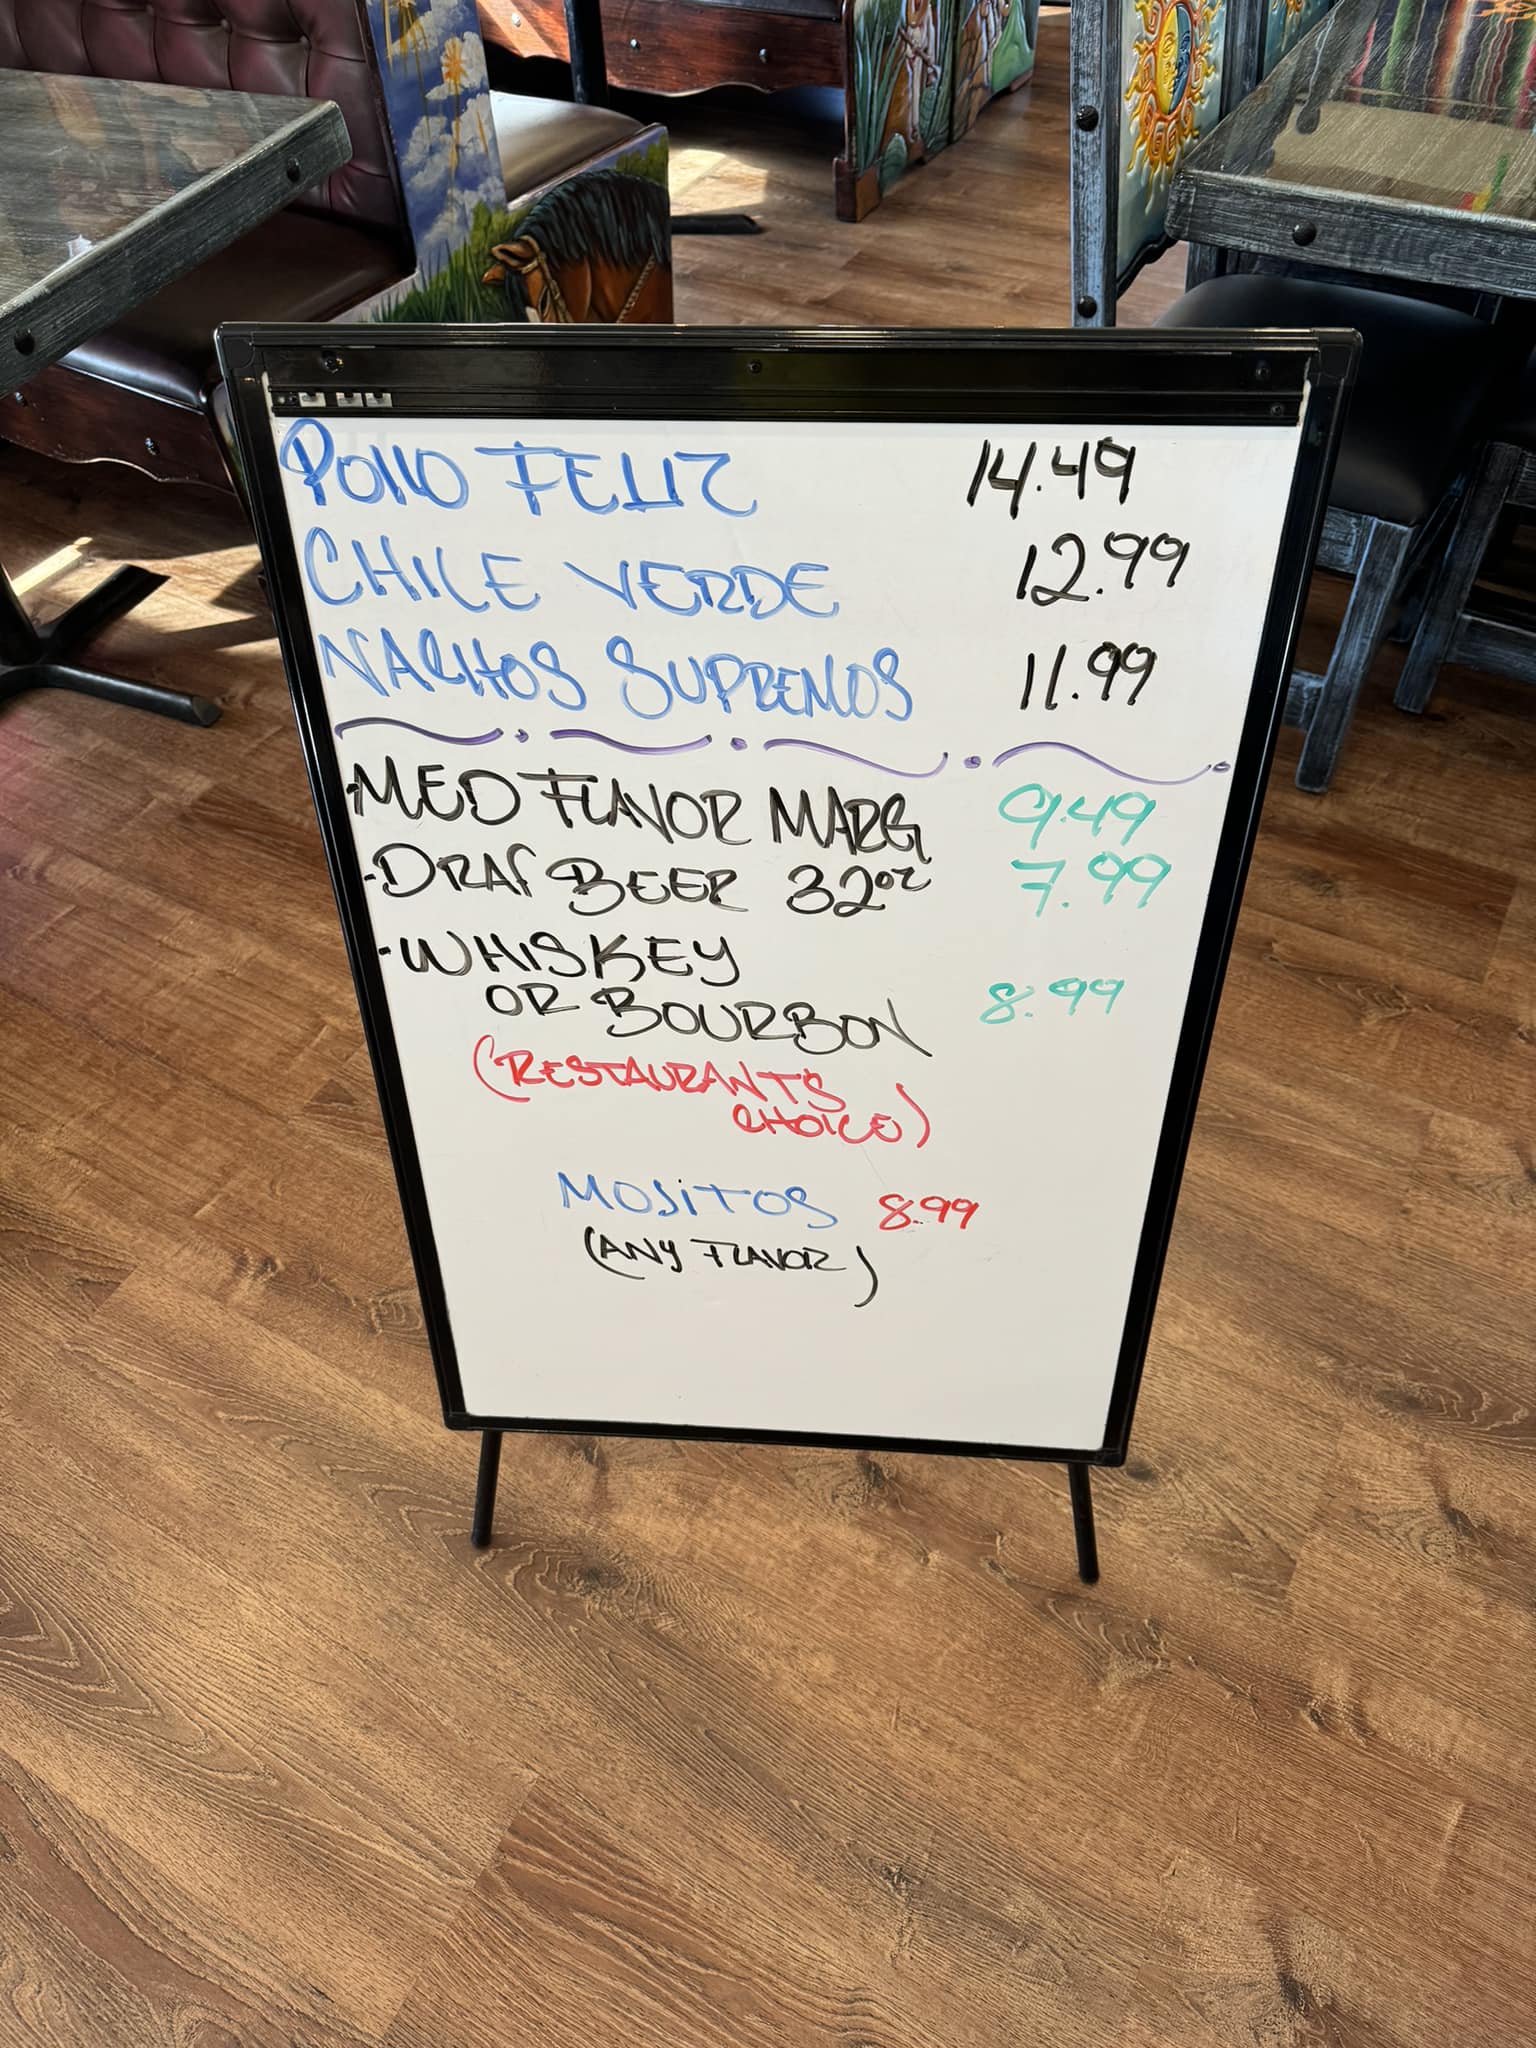 POLLO FELIZ 14.49
CHILE VERDE 12.99
NACHOS SUPREMOS 11.99
-MED FLAVOR MARG 9.49
-DRAF BEER 32oz 7.99
-WHISKEY
OR BOURBON 8.99
(RESTAURANTS
CHOICE)
MOJITOS 8.99
(ANY FLAVOR)